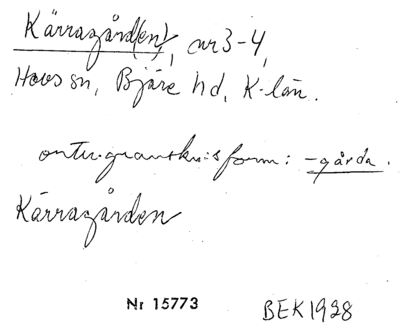 Kärragård(en), nr 3-4,
Hovs sn, Bjäre hd, K-län.
ortn.-gransknis form: -gårda.
Kärragården
Nr 15773
BEK 1928